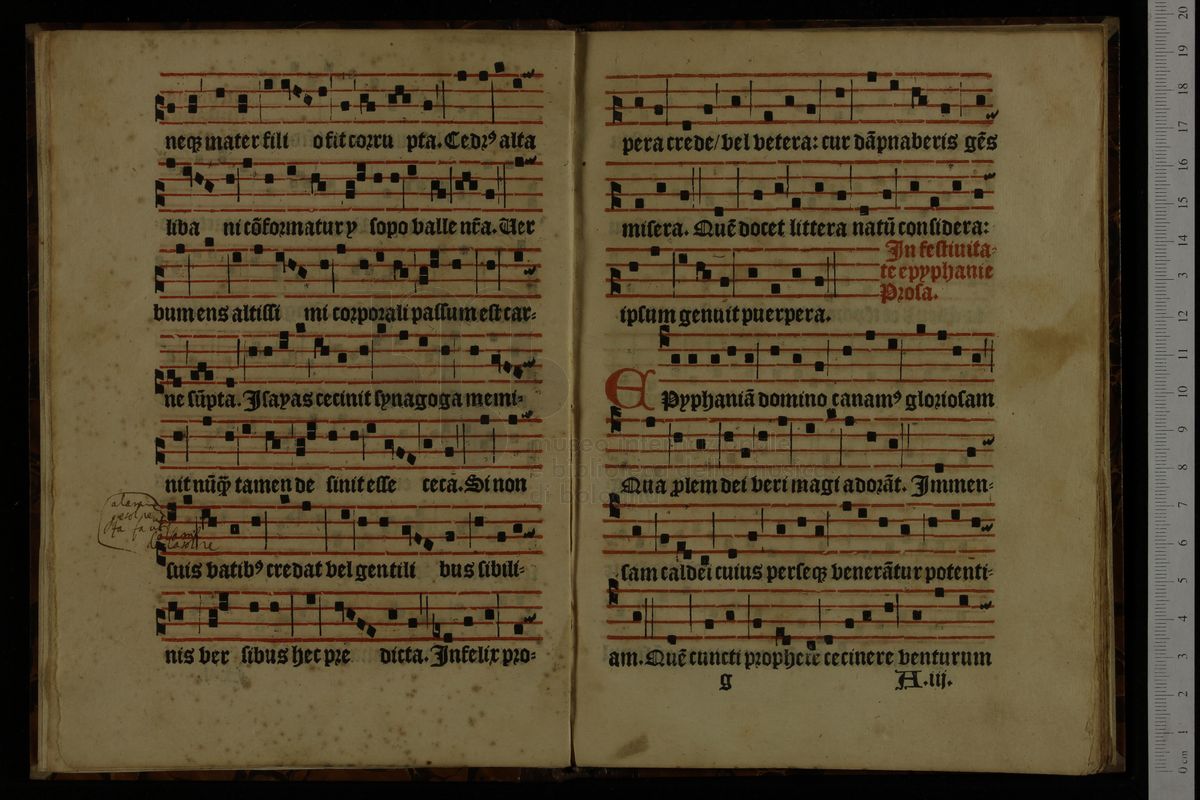 neqꝫ mater fili o fit corru pta. Cedrꝰ alta
liba ni cōformatur y sopo valle nr̄a. Uer
bum ens altissi mi corporali passum est car⸗
ne sūpta. Jsayas cecinit synagoga memi⸗
nit nūq̄ꝫ tamen de sinit esse ceca. Si non
suis vatibꝰ credat vel gentili bus sibili⸗
nis ver sibus hec pre dicta. Jnfelix pro⸗
pera crede/vel vetera: cur dāpnaberis gēs
misera. Quē docet littera natū considera:
Jn festiuita⸗
te epyphanie
Prosa.
ipsum genuit puerpera.
EPyphaniā domino canamꝰ gloriosam
Qua ꝓlem dei veri magi adorāt. Jmmen⸗
sam caldei cuius perseqꝫ venerātur potenti⸗
am. Quē cuncti prophete cecinere venturum
g A.iij.
museo internazionale
e biblioteca della musica
di bologna